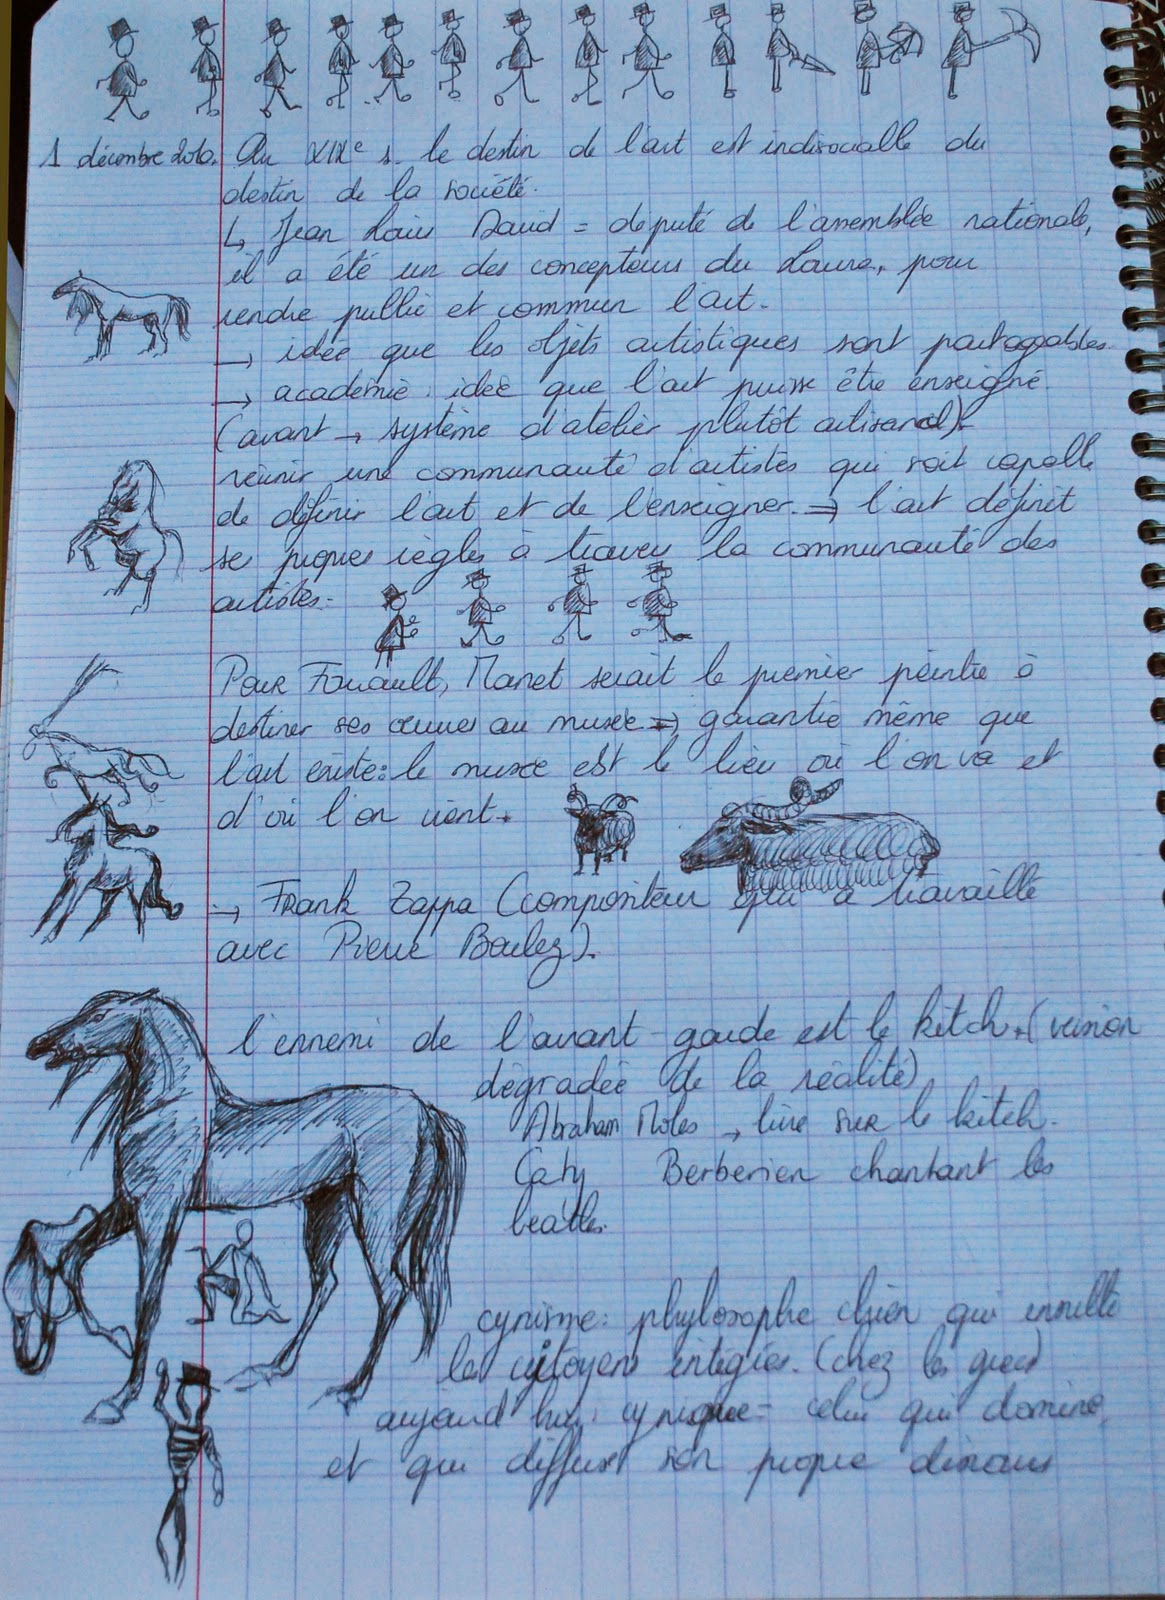 1 décembre 2010. Au XIXe s. le destin de l'art est indisociable du
destin de la société.
↳ Jean Louis David = député de l'assemblée nationale,
il a été un des concepteurs du Louvre, pour
rendre public et commun l'art.
→ idée que les objets artistiques sont partageables.
→ académie : idée que l'art puisse être enseigné
(avant → système d'atelier plutôt artisanal).
réunir une communauté d'artistes qui soit capable
de définir l'art et de l'enseigner. ⇒ l'art définit
se propres règles à travers la communauté des
artistes.
Pour Foucault, Manet serait le premier peintre à
destiner ses œuvres au musée ⇒ garantie même que
l'art existe : le musée est le lieu où l'on va et
d'où l'on vient.
→ Frank Zappa (compositeur qui a travaillé
avec Pierre Boulez).
l'ennemi de l'avant-garde est le kitch. (version
dégradée de la réalité)
Abraham Moles → livre sur le kitch.
Caty Berberien chantant les
beatles.
cynisme : phylosophe chien qui
les citoyens intégrés. (chez les grecs)
aujourd'hui : cynique = celui qui domine
et qui diffuse son propre discours